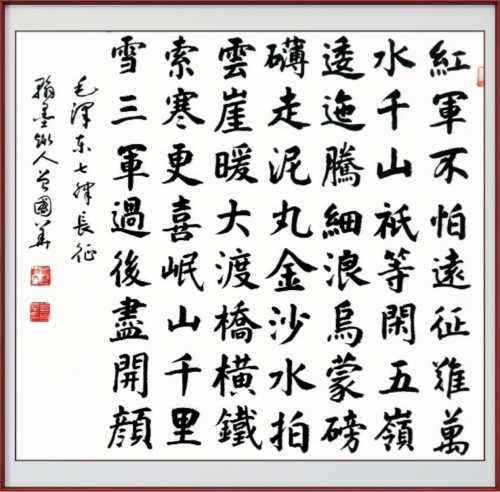 紅軍不怕遠征難萬
水千山祇等閑五嶺
逶迤騰細浪烏蒙磅
礴走泥丸金沙水拍
雲崖暖大渡橋橫鐵
索寒更喜岷山千里
雪三軍過後盡開顔
毛澤东七律長征
翰墨人曾國